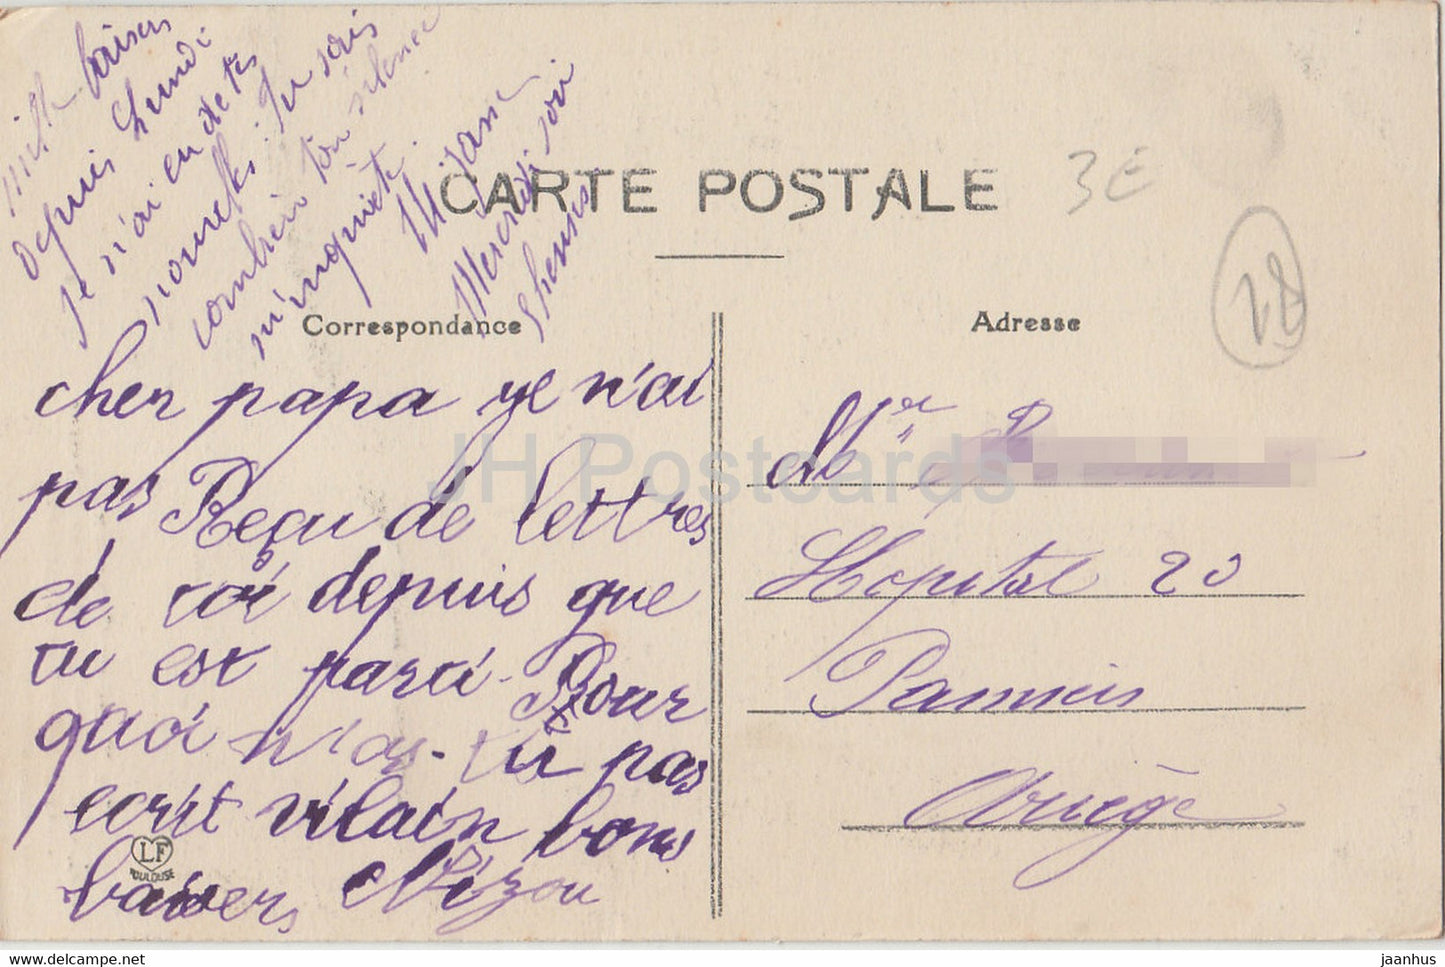 mille baisers
depuis Lundi
je n'ai eu de tes
nouvelles. Tu sais
combien ton silence
m'inquiète.
Mercredi soir
CARTE POSTALE
3E
28
Correspondance
Adresse
cher papa je n'ai
pas Reçu de lettres
de toi depuis que
tu est parti. Pour
quoi n'as-tu pas
ecrit vilain bons
baisers Mizou
LF
TOULOUSE
Mr
Hopital 20
Pamiers
Ariège
JH Postcards
www.hippostcard.com
jaanhus